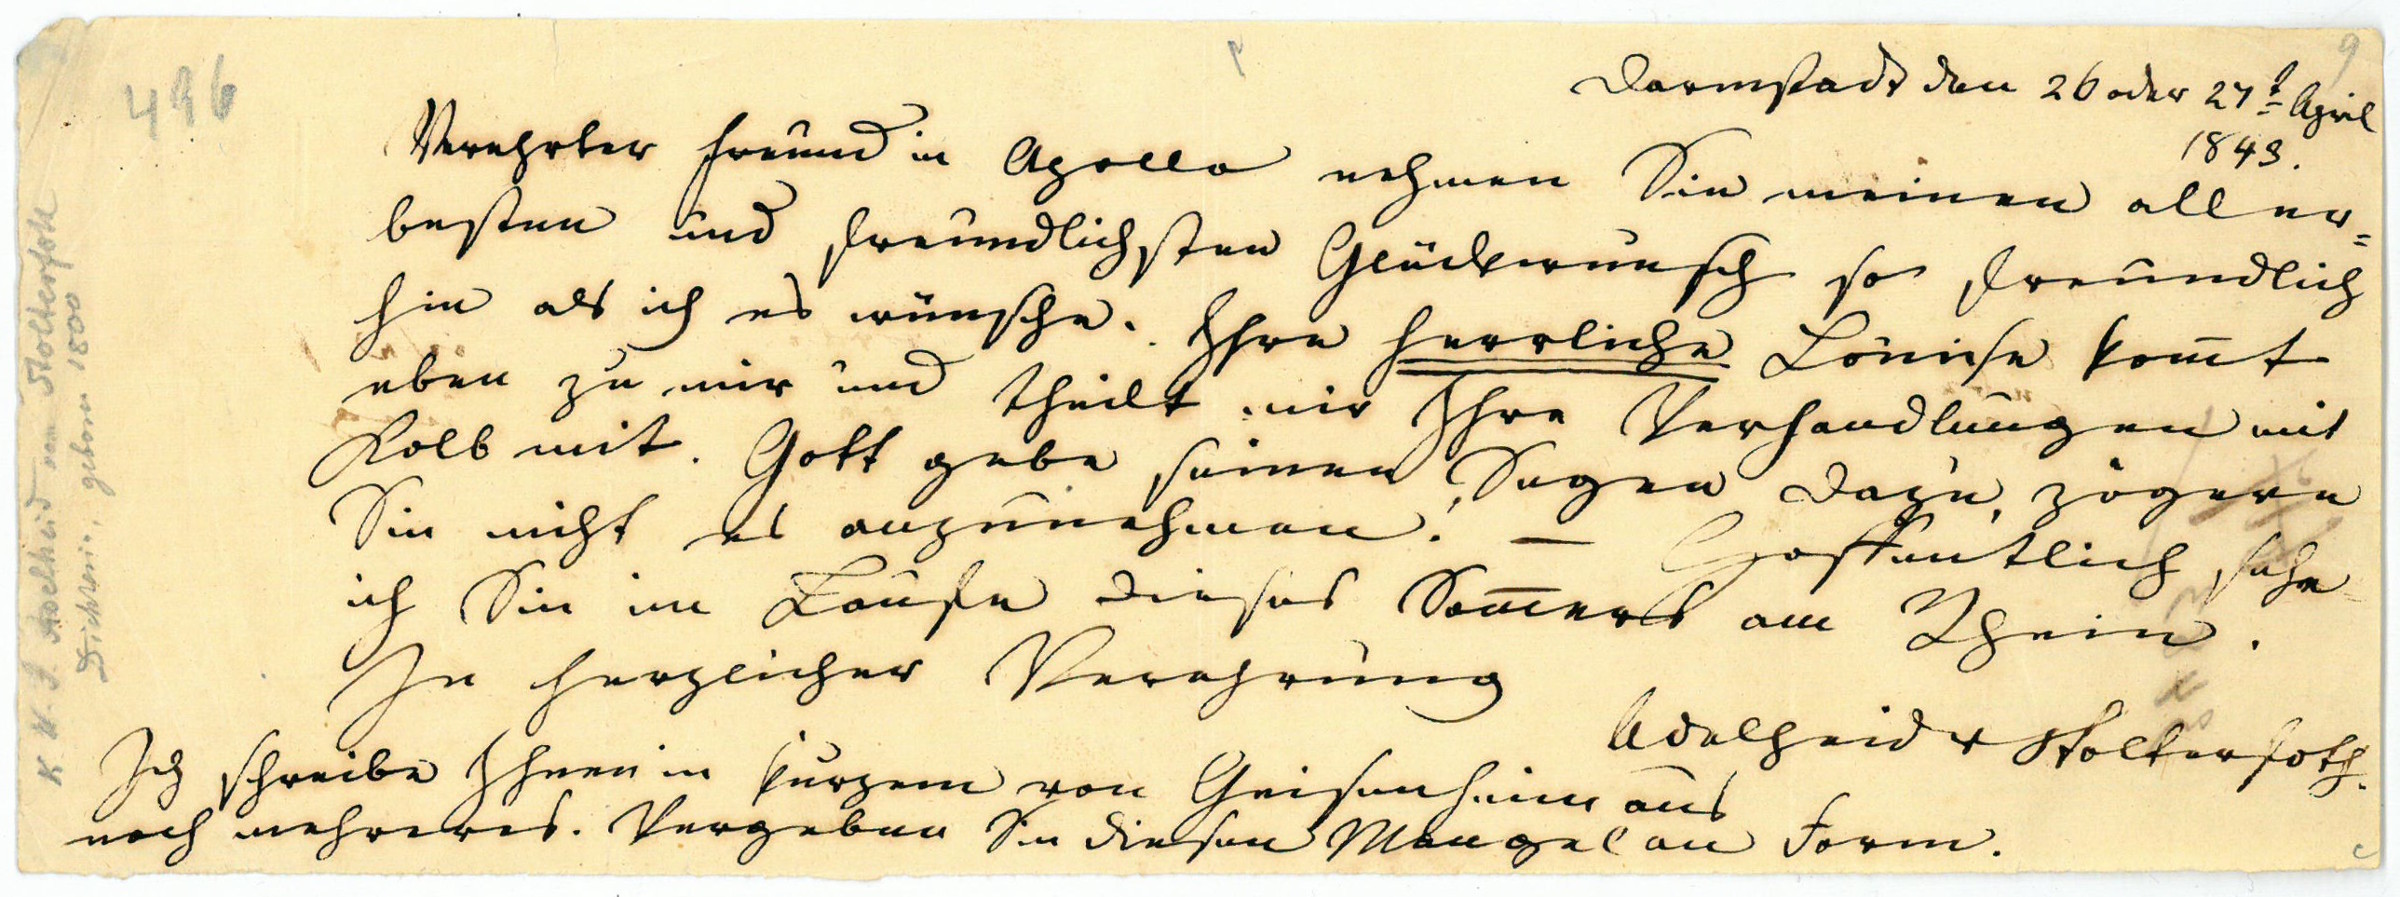 496
9
Darmstadt den 26 oder 27t April
1843.
Verehrter Freund in Apollo nehmen Sie meinen aller=
besten und freundlichsten Glückwunsch so freundlich
hin als ich es wünsche. Ihre herrliche Louise kom̅t
eben zu mir und theilt mir Ihre Verhandlungen mit
Kolb mit. Gott gebe seinen Segen dazu, zögern
Sie nicht es anzunehmen! — Hoffentlich sehe
ich Sie im Laufe dieses Som̅ers am Rhein.
In herzlicher Verehrung
Adelheid v Stolterfoth.
Ich schreibe Ihnen in kurzem von Geisenheim aus
noch mehreres. Vergeben Sie diesen Mangel an Form.
Adelheid von Stolterfoth
Dichterin, geboren 1800